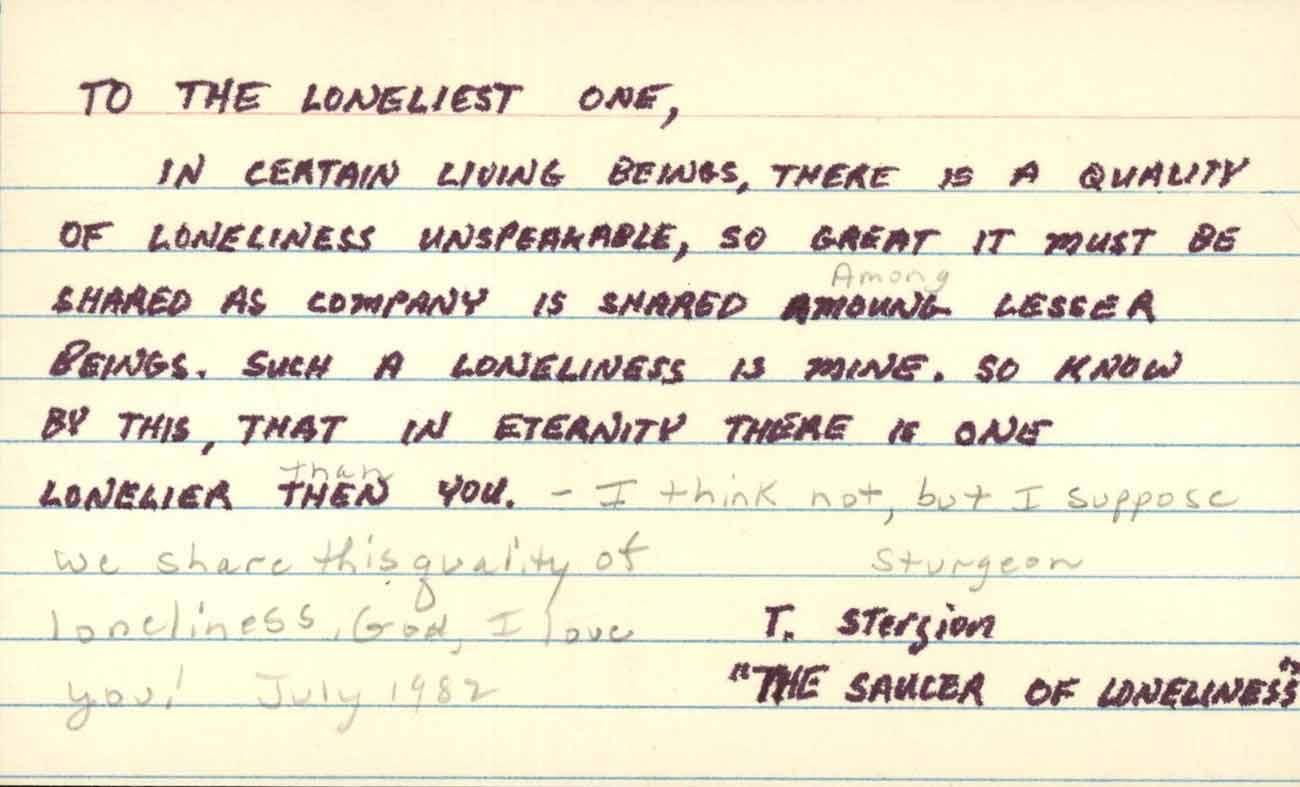 TO THE LONELIEST ONE,
IN CERTAIN LIVING BEINGS, THERE IS A QUALITY
OF LONELINESS UNSPEAKABLE, SO GREAT IT MUST BE
Among
SHARED AS COMPANY IS SHARED AMOUNG LESSER
BEINGS. SUCH A LONELINESS IS MINE. SO KNOW
BY THIS, THAT IN ETERNITY THERE IS ONE
than
LONELIER THEN YOU. - I think not, but I suppose
we share this quality of
Sturgeon
loneliness. God, I love
T. Stergion
you! July 1982
"THE SAUCER OF LONELINESS"